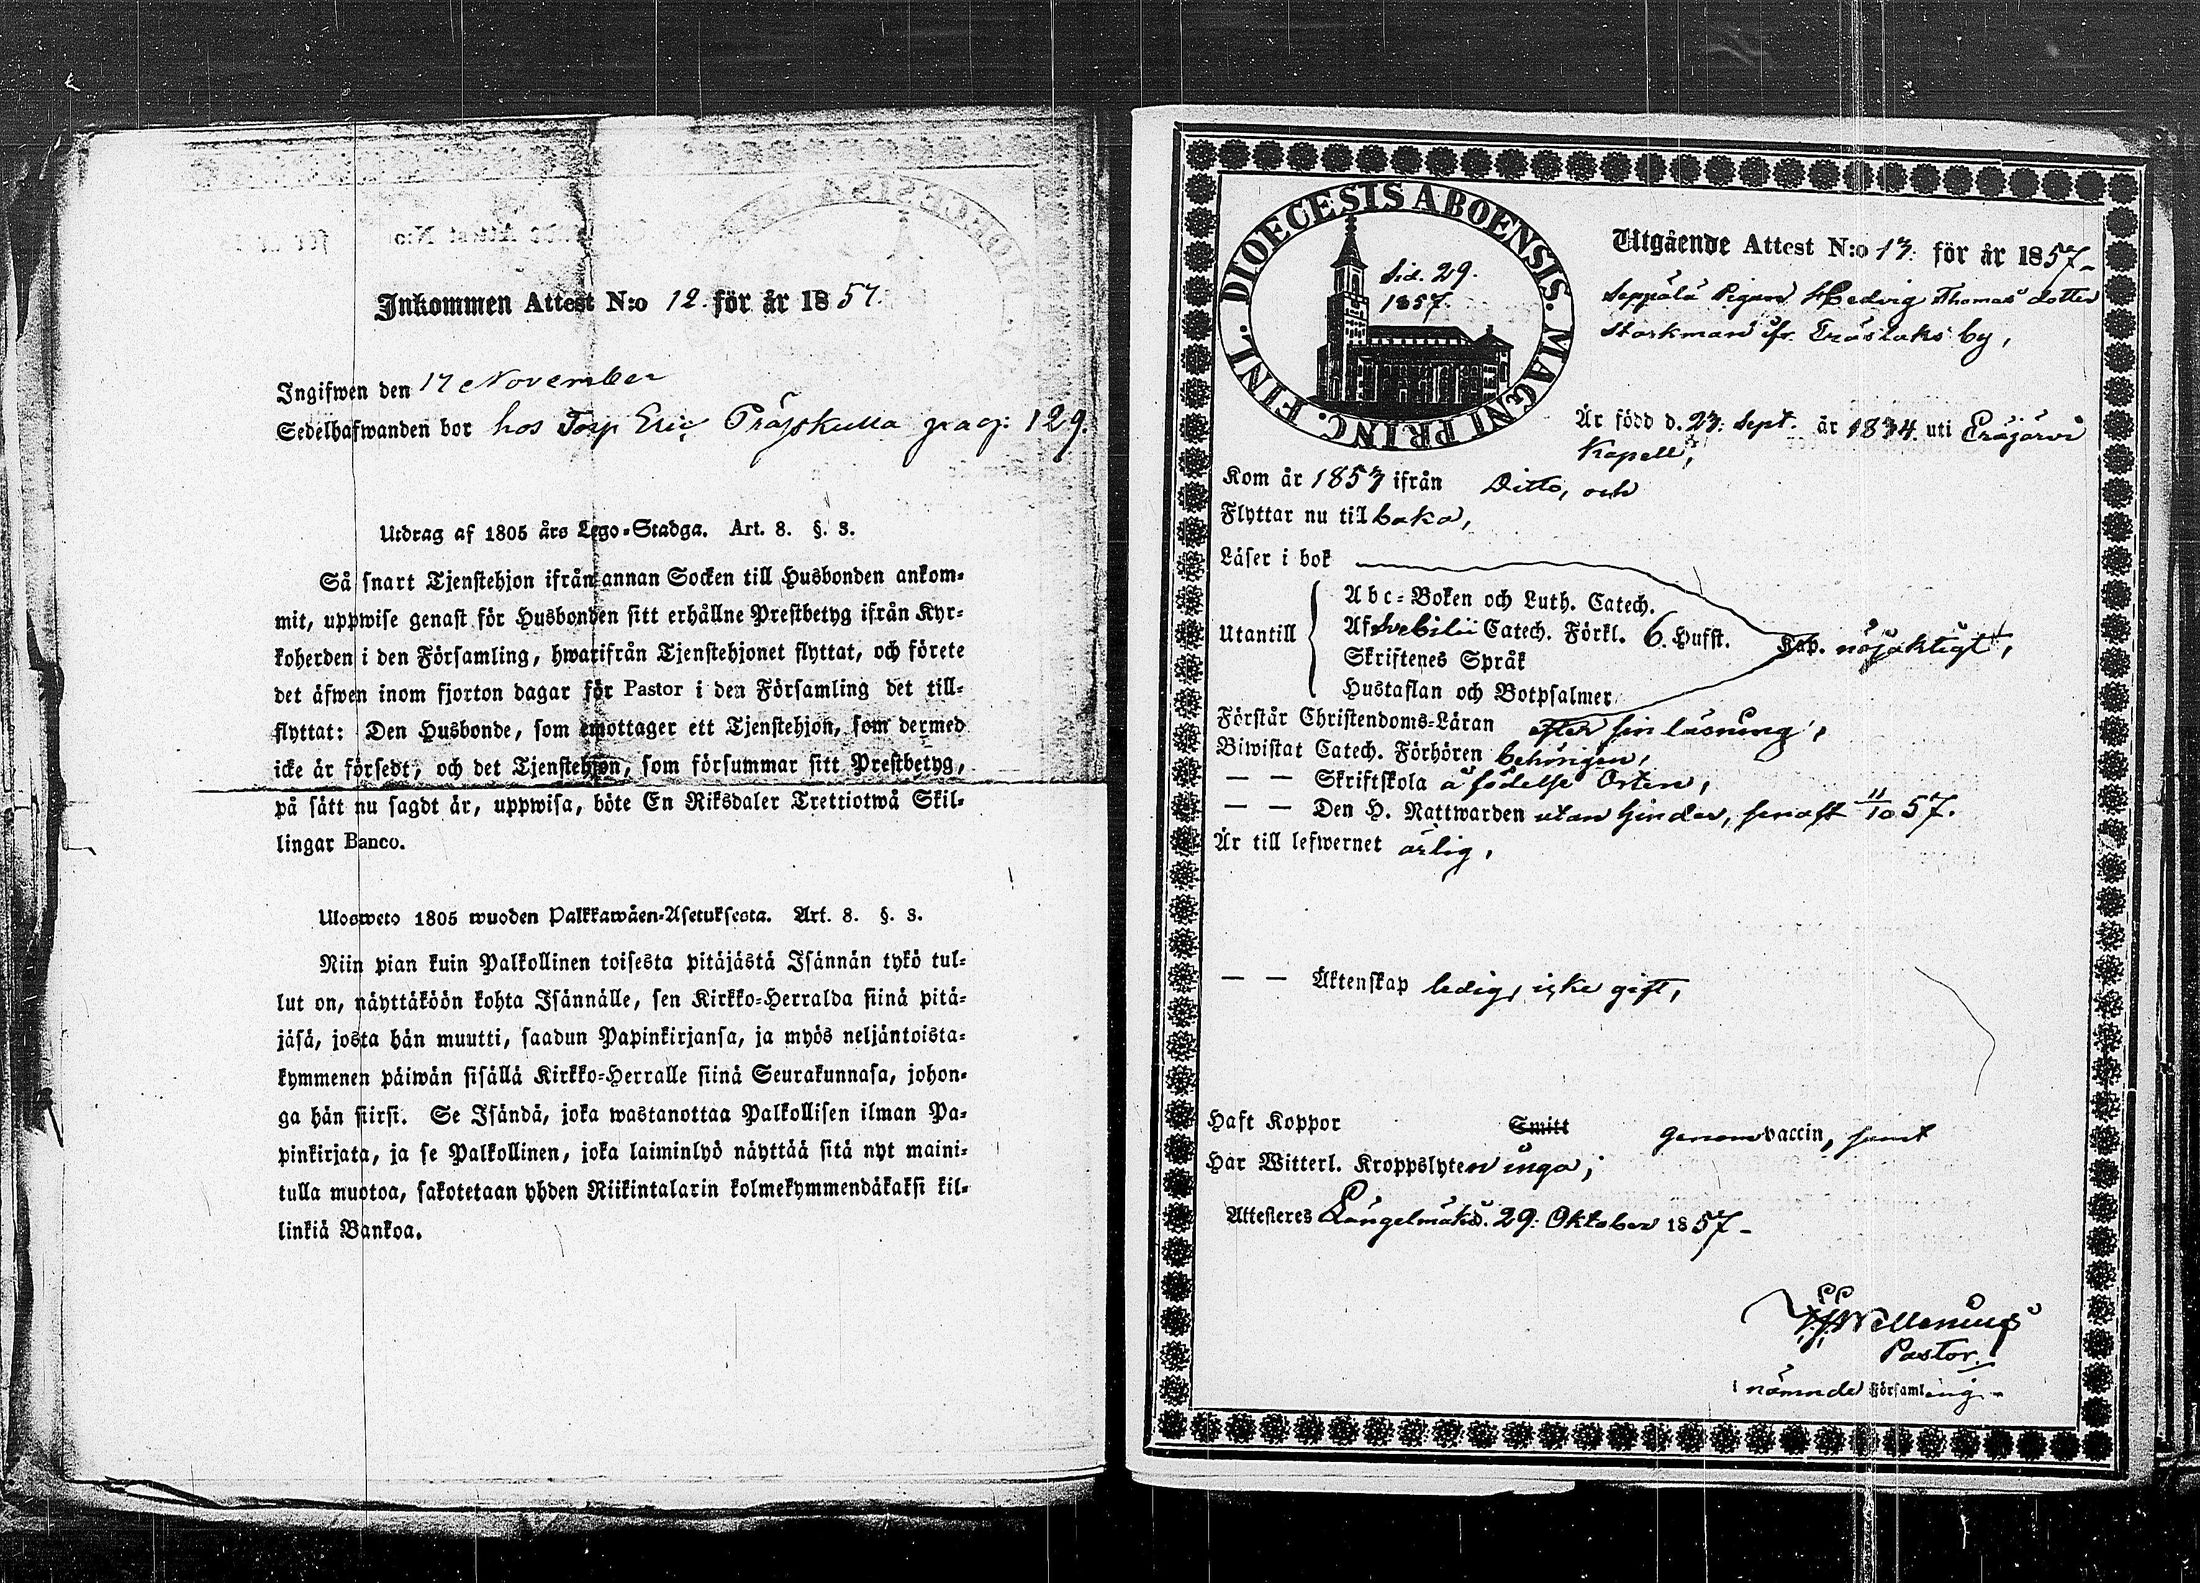 Inkommen Attest N:o 12. för år 1857.
Ingifwen den 17 November
Sedelhafwanden bor hos Torp Eric Präjskulla pag: 129.
Utdrag af 1805 års Lego-Stadga. Art. 8. §. 3.
Så snart Tjenstehjon ifrån annan Socken till Husbonden ankom-
mit, uppwise genast för Husbonden sitt erhållne Prestbetyg ifrån Kyr-
koherden i den Församling, hwarifrån Tjenstehjonet flyttat, och förete
det äfwen inom fjorton dagar för Pastor i den Församling det till-
flyttat: Den Husbonde, som emottager ett Tjenstehjon, som dermed
icke är försedt, och det Tjenstehjon, som försummar sitt Prestbetyg,
på sätt nu sagdt är, uppwisa, böte En Riksdaler Trettiotwå Skil-
lingar Banco.
Ulosweto 1805 wuoden Palkkawäen-Asetuksesta. Art. 8. §. 3.
Niin pian kuin Palkollinen toisesta pitäjästä Isännän tykö tul-
lut on, näyttäköön kohta Isännälle, sen Kirkko-Herralda siinä pitä-
jäsä, josta hän muutti, saadun Papinkirjansa, ja myös neljäntoista-
kymmenen päiwän sisällä Kirkko-Herralle siinä Seurakunnasa, johon-
ga hän siirsi. Se Isändä, joka wastanottaa Palkollisen ilman Pa-
pinkirjata, ja se Palkollinen, joka laiminlyö näyttää sitä nyt maini-
tulla muotoa, sakotetaan yhden Riikintalarin kolmekymmendäkaksi kil-
linkiä Bankoa.
DIOECESIS ABOENSIS. MAGNI PRINC. FINL.
Sid. 29.
1857.
Utgående Attest N:o 13. för år 1857
Seppälä Pigan Hedvig Thomas dotter
Starkman ifr. Eräslaks by,
Är född d. 23: Sept. år 1834. uti Eräjärvi
Kapell,
Kom år 1853 ifrån Ditto, och
Flyttar nu tilbaka,
Läser i bok
Utantill
Abc-Boken och Luth. Catech.
Af Svebilii Catech. Förkl. 6. Hufst. Kap. nöjaktigt,
Skriftenes Språk
Hustaflan och Botpsalmer
Förstår Christendoms-Läran efter sin läsning,
Biwistat Catech. Förhören behörigen,
— — Skriftskola å födelse Orten,
— — Den H. Nattwarden utan hinder, senast 11/10 57.
Är till lefwernet ärlig,
— — Äktenskap ledig, icke gift,
Haft Koppor Smitt genom vaccin, samt
Har Witterl. Kroppslyten inga;
Attesteres Längelmäki. 29: Oktober 1857
Wellenius
Pastor.
i nämnde Församling